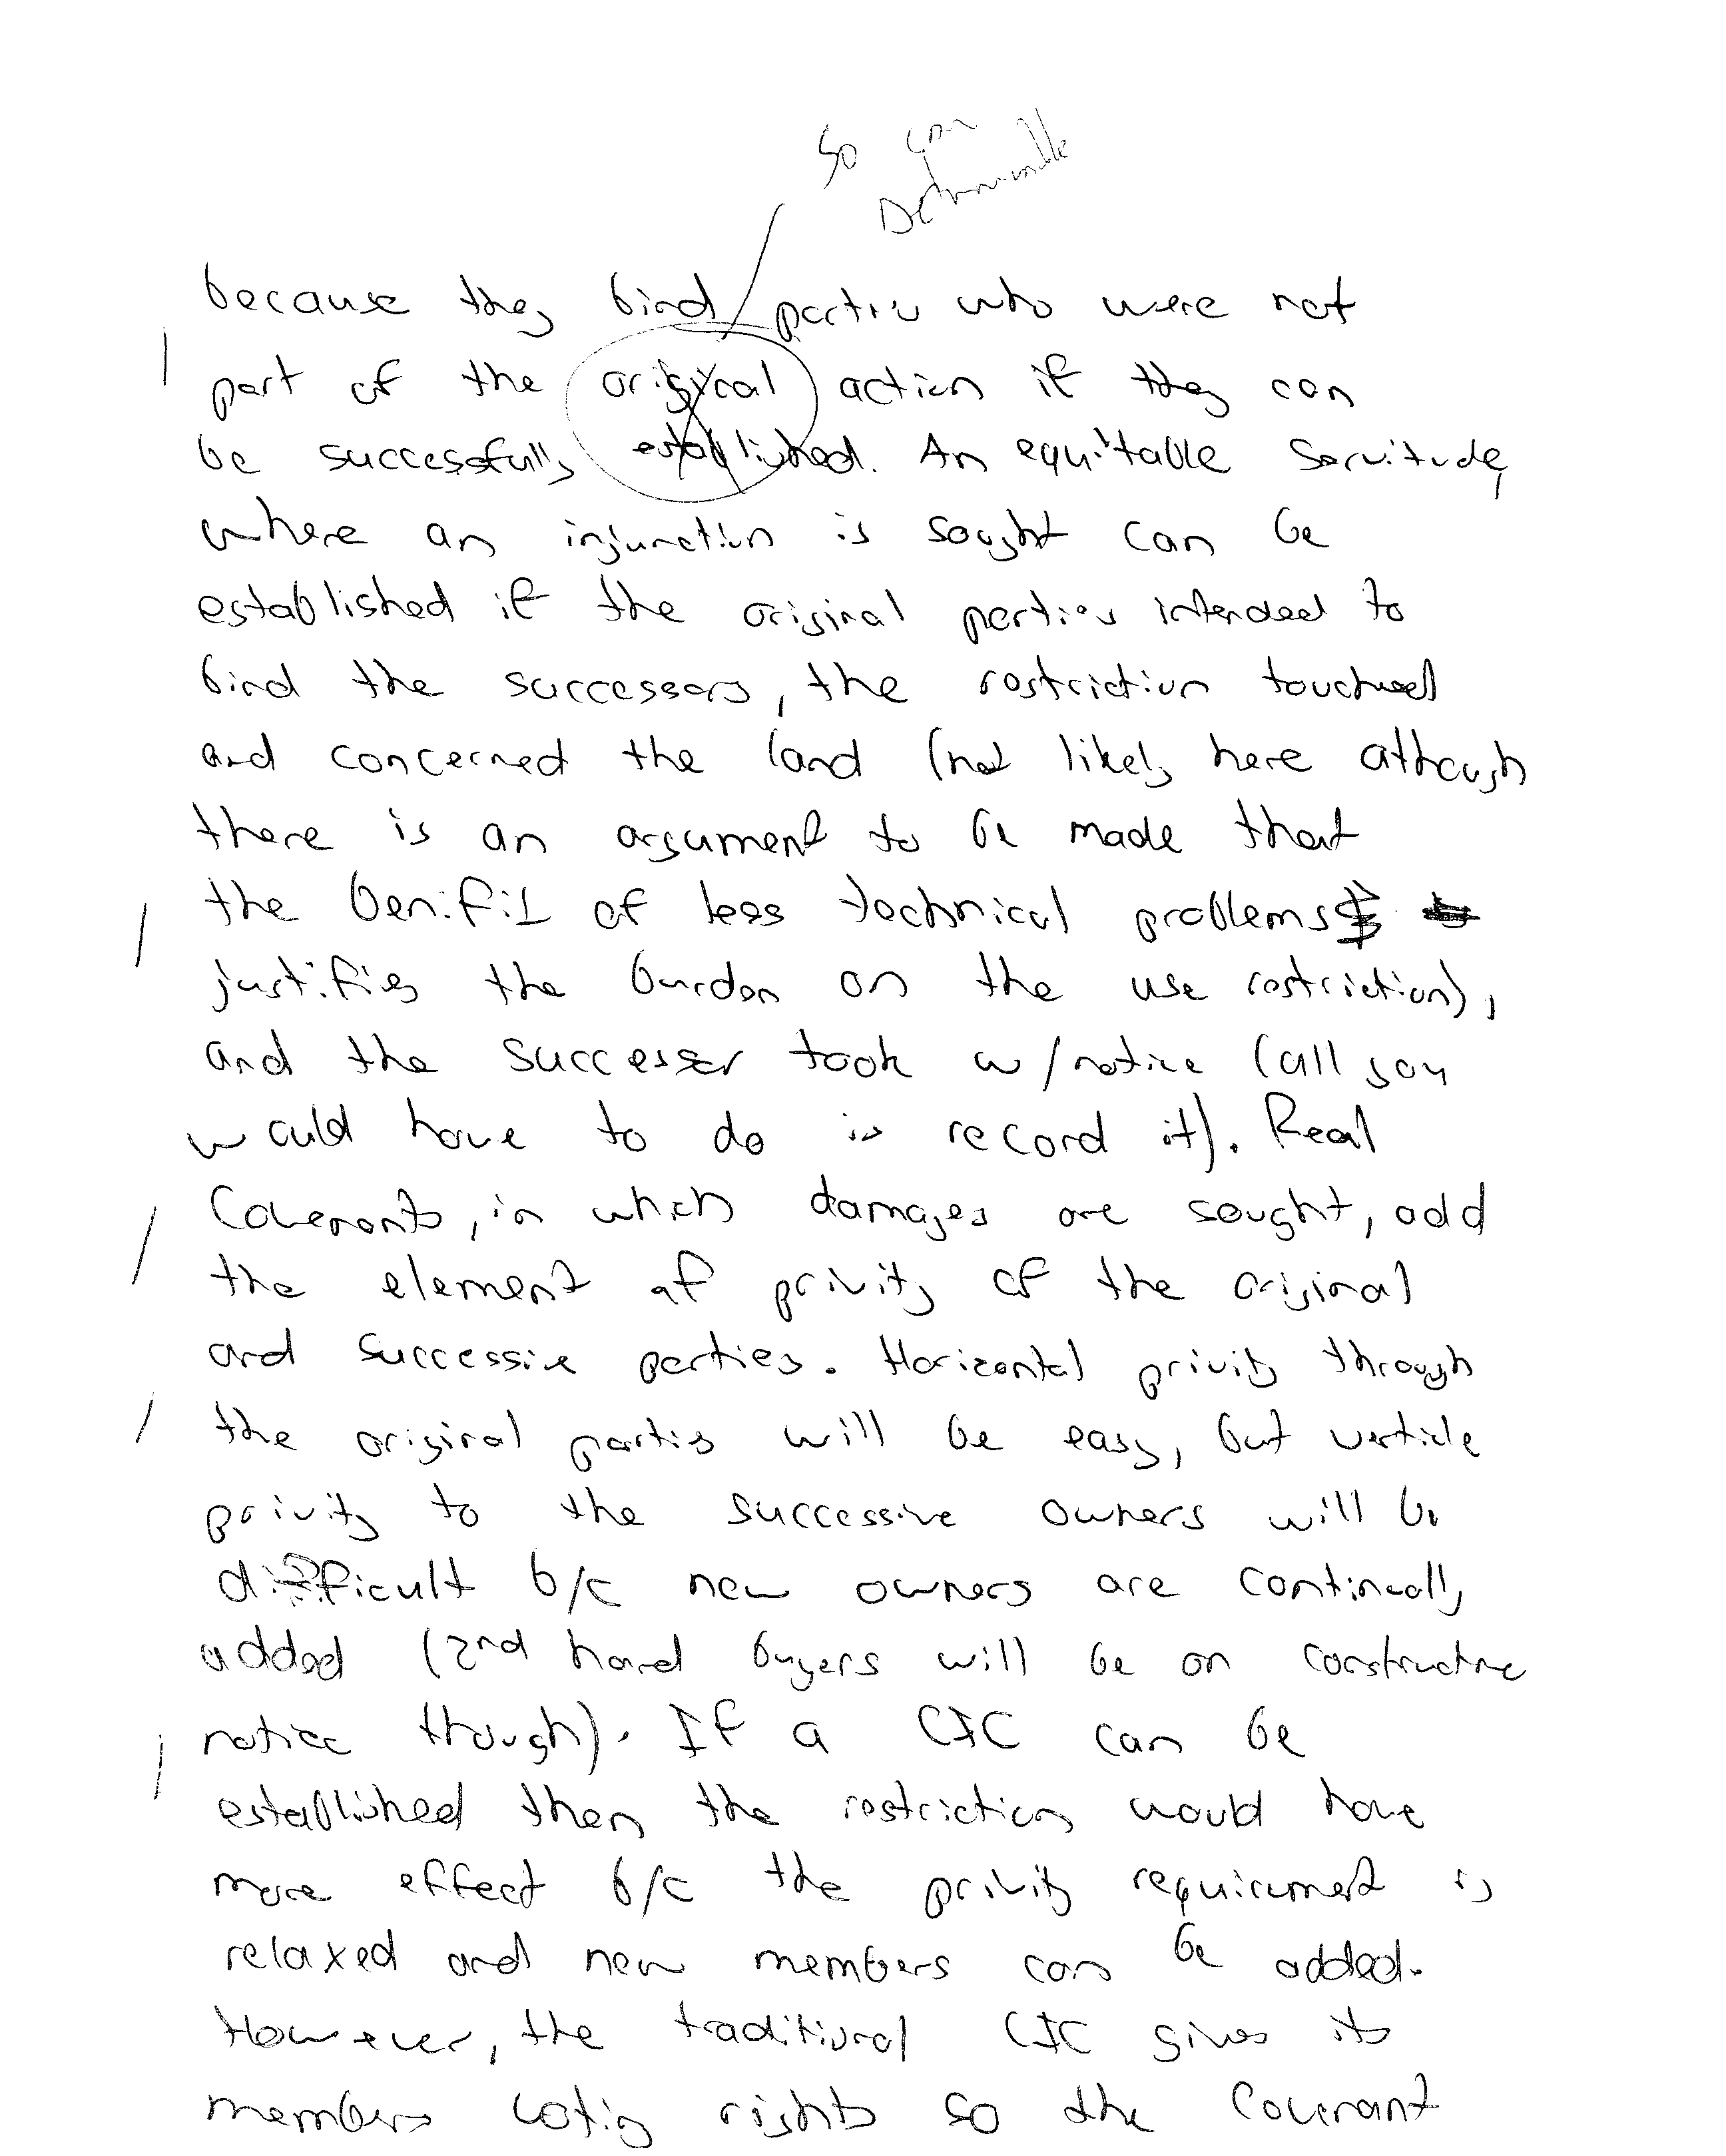 so can
Determinable
because they bind parties who were not
part of the original action if they can
be successfully established. An equitable servitude,
where an injunction is sought can be
established if the original parties intended to
bind the successors, the restriction touched
and concerned the land (not likely here although
there is an argument to be made that
the benifit of less technical problems
justifies the burden on the use restriction),
and the successer took w/notice (all you
would have to do is record it). Real
Covenants, in which damages are sought, add
the element of privity of the original
and successive parties. Horizontal privity through
the original parties will be easy, but verticle
privity to the successive owners will be
difficult b/c new owners are continually
added (2nd hand buyers will be on constructive
notice though). If a CIC can be
established then the restriction would have
more effect b/c the privity requirement is
relaxed and new members can be added.
However, the traditional CIC gives its
members voting rights so the Covenant